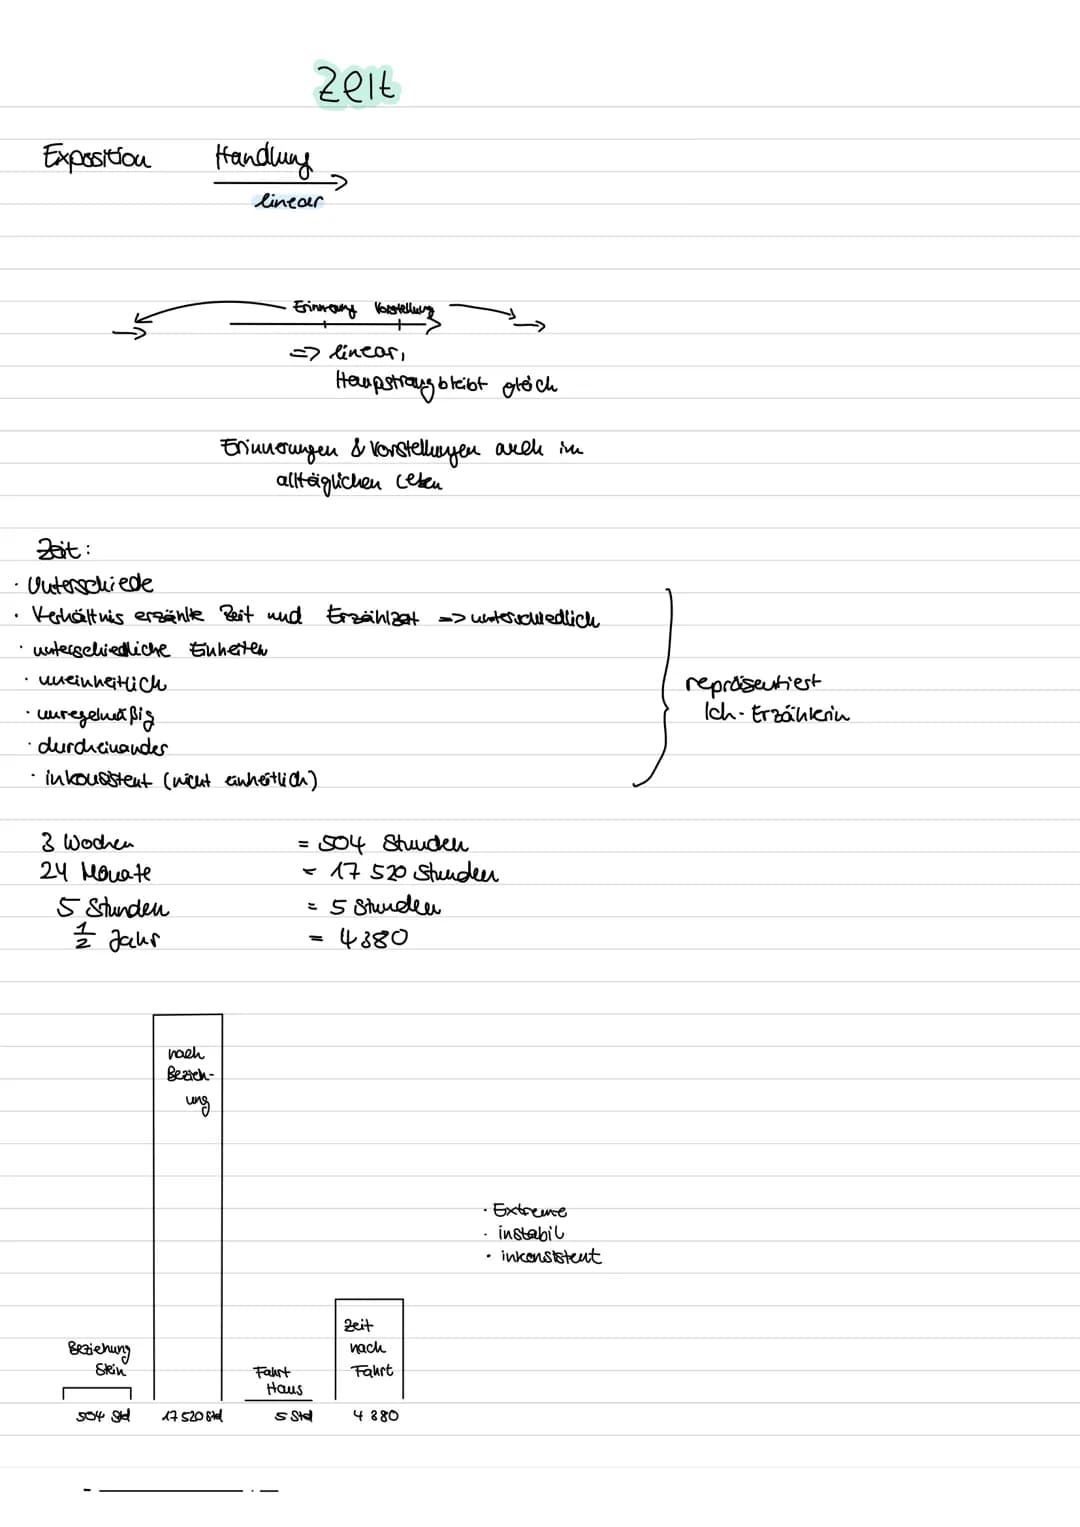 Zeit
Exposition Handlung
linear
Erinnerung Vorstellung
=> linear,
Haupstrang bleibt gleich
Erinnerungen & Vorstellungen auch im
alltäglichen Leben
Zeit:
· Unterschiede
· Verhältnis erzählte Zeit und Erzählzeit => unterschiedlich
· unterschiedliche Einheiten
· uneinheitlich
· unregelmäßig
· durcheinander
· inkonsistent (nicht einheitlich)
repräsentiert
Ich-Erzählerin
3 Wochen = 504 Stunden
24 Monate = 17 520 Stunden
5 Stunden = 5 Stunden
1/2 Jahr = 4380
nach
Bezieh-
ung
· Extreme
· instabil
· inkonsistent
Zeit
nach
Fahrt
Beziehung
Stein
Fahrt
Haus
504 Std 17 520 Std 5 Std 4 380